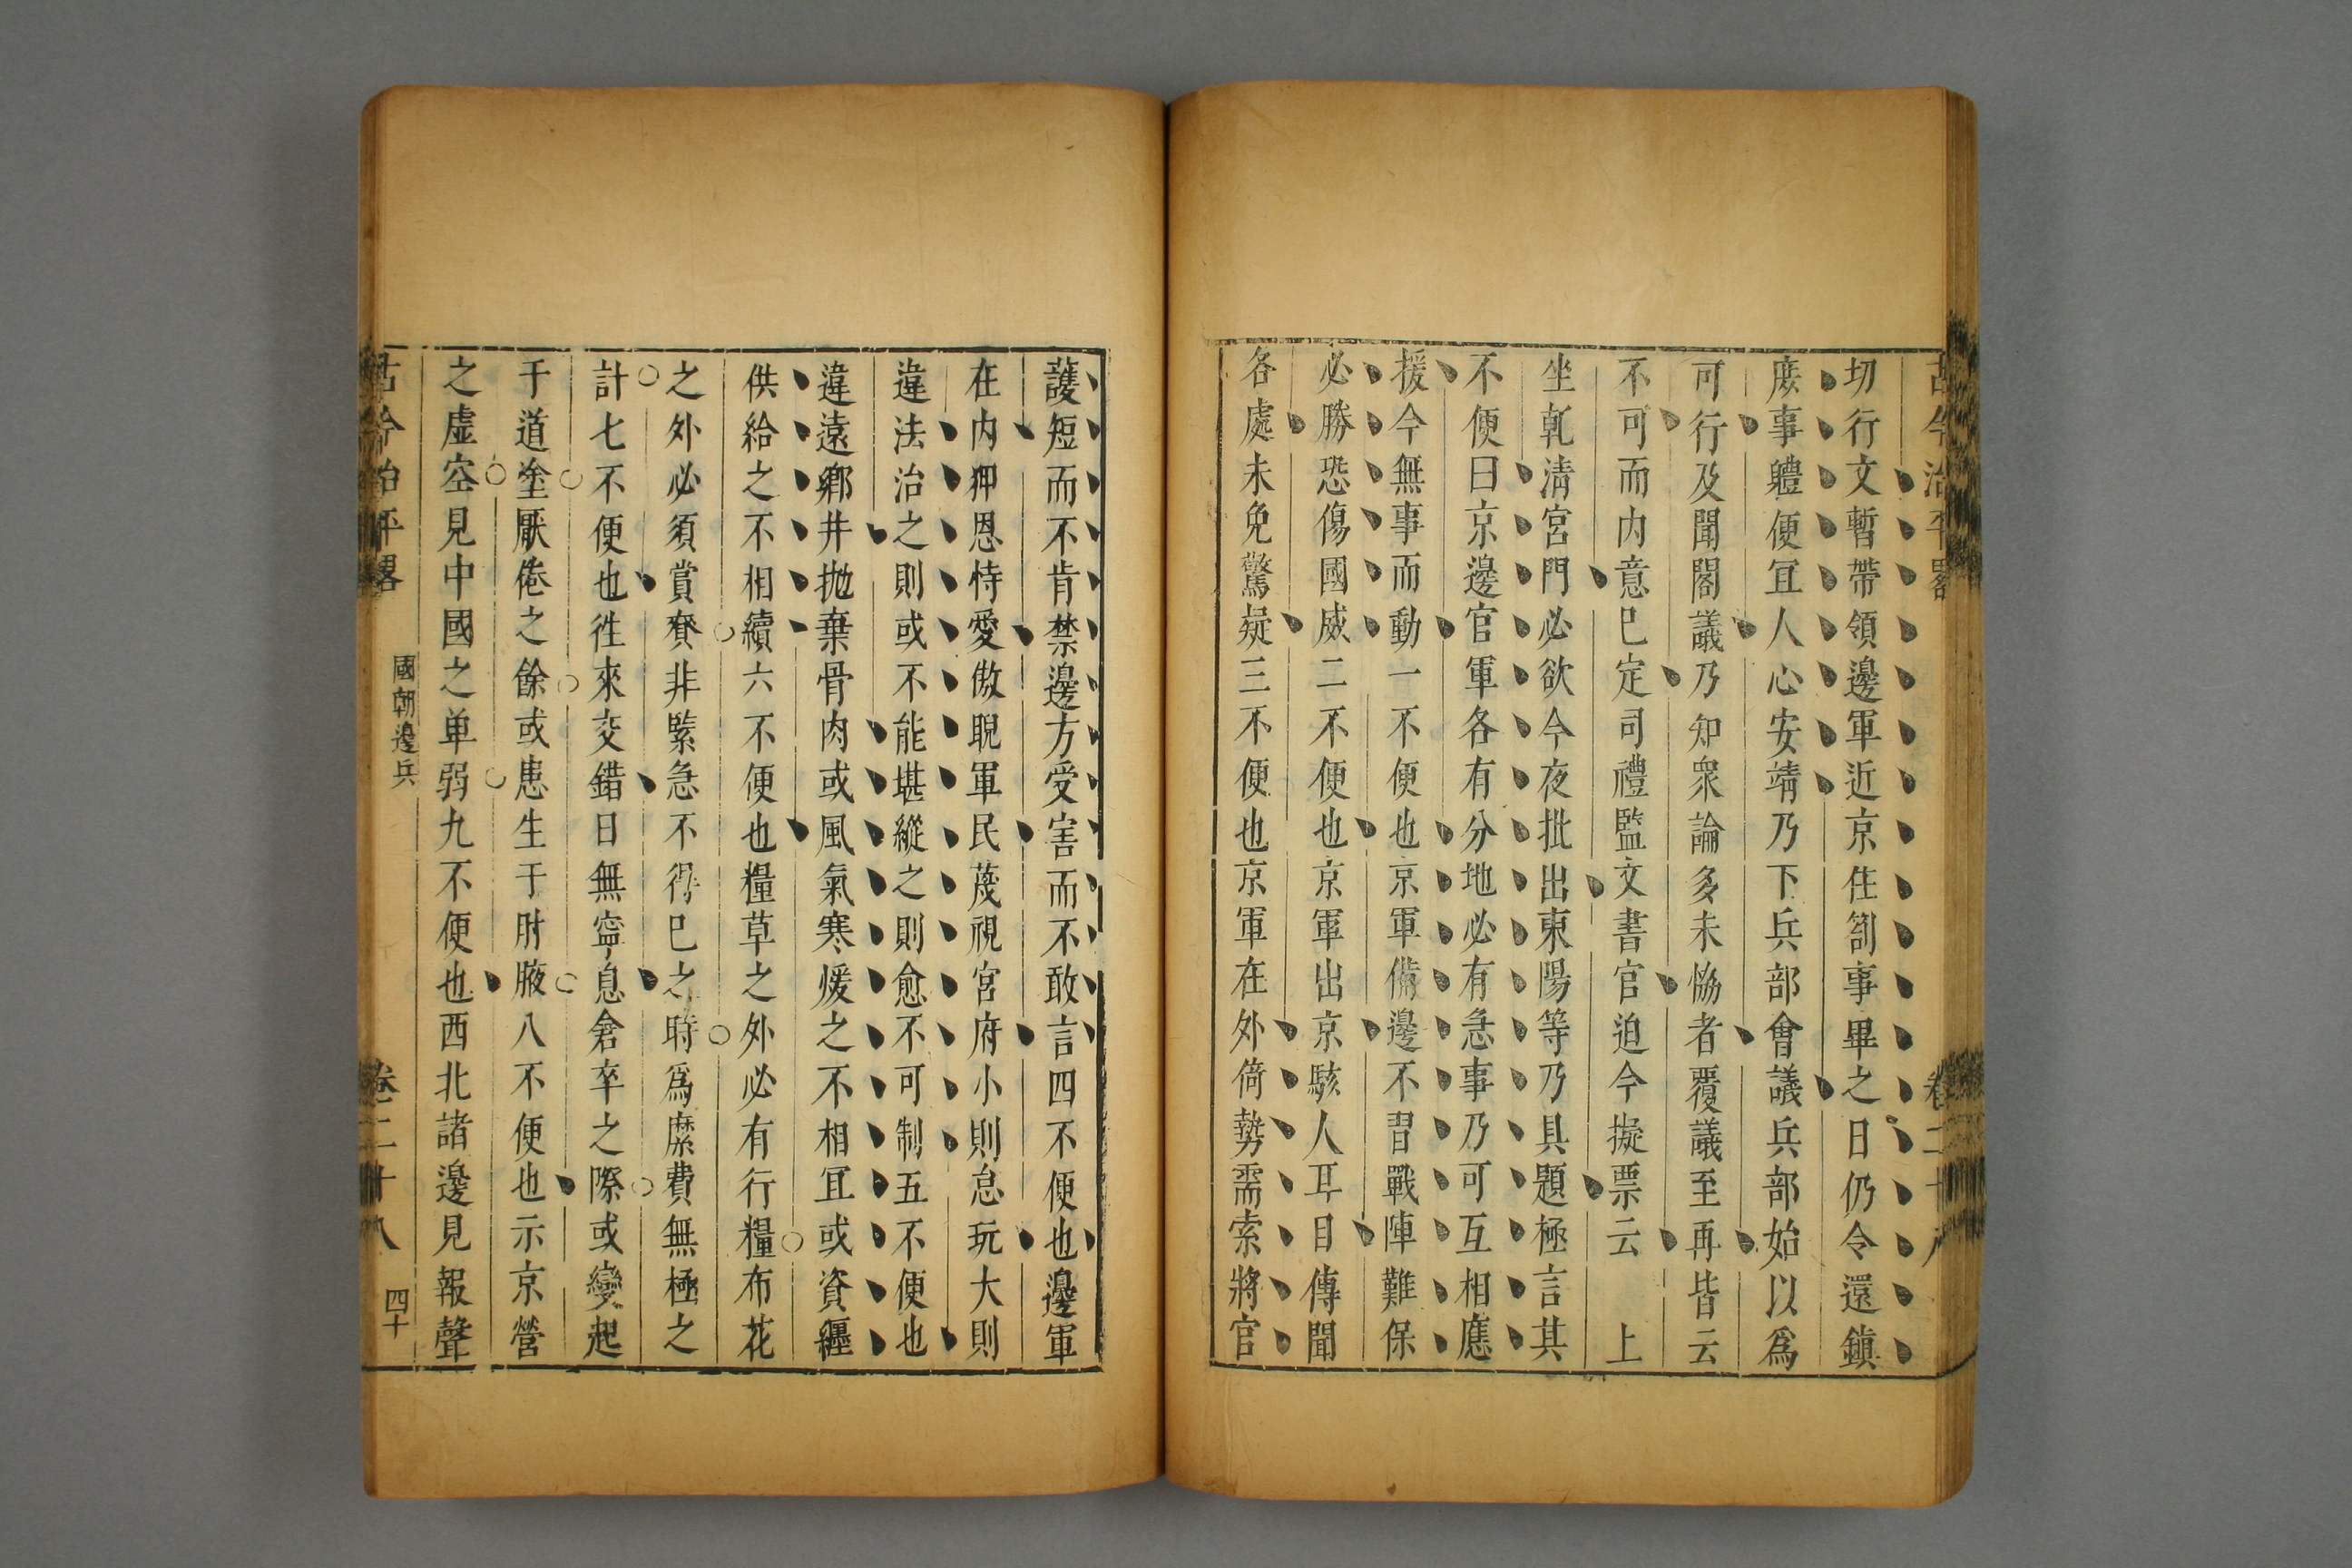 古今治平畧
卷二十八
切行文暫帶領邊軍近京住劄事畢之日仍令還鎮
庶事軆便冝人心安靖乃下兵部會議兵部始以爲
可行及聞閣議乃知衆論多未恊者覆議至再皆云
不可而内意已定司禮監文書官迫令擬票云　上
坐乾淸宮門必欲今夜批出東陽等乃具題極言其
不便曰京邊官軍各有分地必有急事乃可互相應
援今無事而動一不便也京軍備邊不習戰陣難保
必勝恐傷國威二不便也京軍出京駭人耳目傳聞
各處未免驚疑三不便也京軍在外倚勢需索將官
護短而不肯禁邊方受害而不敢言四不便也邊軍
在内狎恩恃愛傲睨軍民蔑視宮府小則怠玩大則
違法治之則或不能堪縱之則愈不可制五不便也
違遠鄉井抛棄骨肉或風氣寒煖之不相冝或資纒
供給之不相續六不便也糧草之外必有行糧布花
之外必須賞賚非緊急不得已之時爲糜費無極之
計七不便也徃來交錯日無寧息倉卒之際或變起
于道塗厭倦之餘或患生于肘腋八不便也示京營
之虛空見中國之单弱九不便也西北諸邊見報聲
古今治平畧
國朝邊兵
卷二十八
四十